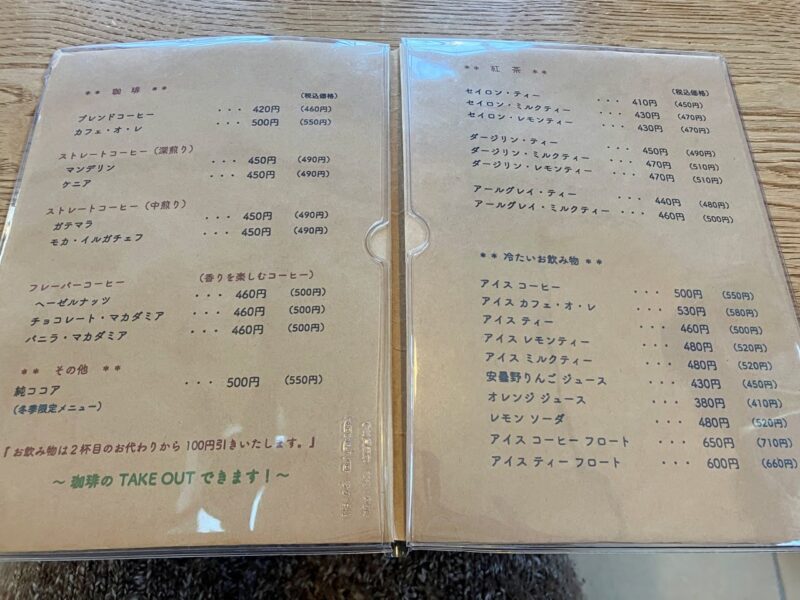 ** 珈琲 **
(税込価格)
ブレンドコーヒー ・・・ 420円 (460円)
カフェ・オ・レ ・・・ 500円 (550円)
ストレートコーヒー (深煎り)
マンデリン ・・・ 450円 (490円)
ケニア ・・・ 450円 (490円)
ストレートコーヒー (中煎り)
ガテマラ ・・・ 450円 (490円)
モカ・イルガチェフ ・・・ 450円 (490円)
フレーバーコーヒー (香りを楽しむコーヒー)
ヘーゼルナッツ ・・・ 460円 (500円)
チョコレート・マカダミア ・・・ 460円 (500円)
バニラ・マカダミア ・・・ 460円 (500円)
** その他 **
純ココア ・・・ 500円 (550円)
(冬季限定メニュー)
『お飲み物は2杯目のお代わりから100円引きいたします。』
～ 珈琲の TAKE OUT できます！～
** 紅茶 **
(税込価格)
セイロン・ティー ・・・ 410円 (450円)
セイロン・ミルクティー ・・・ 430円 (470円)
セイロン・レモンティー ・・・ 430円 (470円)
ダージリン・ティー ・・・ 450円 (490円)
ダージリン・ミルクティー ・・・ 470円 (510円)
ダージリン・レモンティー ・・・ 470円 (510円)
アールグレイ・ティー ・・・ 440円 (480円)
アールグレイ・ミルクティー ・・・ 460円 (500円)
** 冷たいお飲み物 **
アイス コーヒー ・・・ 500円 (550円)
アイス カフェ・オ・レ ・・・ 530円 (580円)
アイス ティー ・・・ 460円 (500円)
アイス レモンティー ・・・ 480円 (520円)
アイス ミルクティー ・・・ 480円 (520円)
安曇野りんご ジュース ・・・ 430円 (450円)
オレンジ ジュース ・・・ 380円 (410円)
レモン ソーダ ・・・ 480円 (520円)
アイス コーヒー フロート ・・・ 650円 (710円)
アイス ティー フロート ・・・ 600円 (660円)